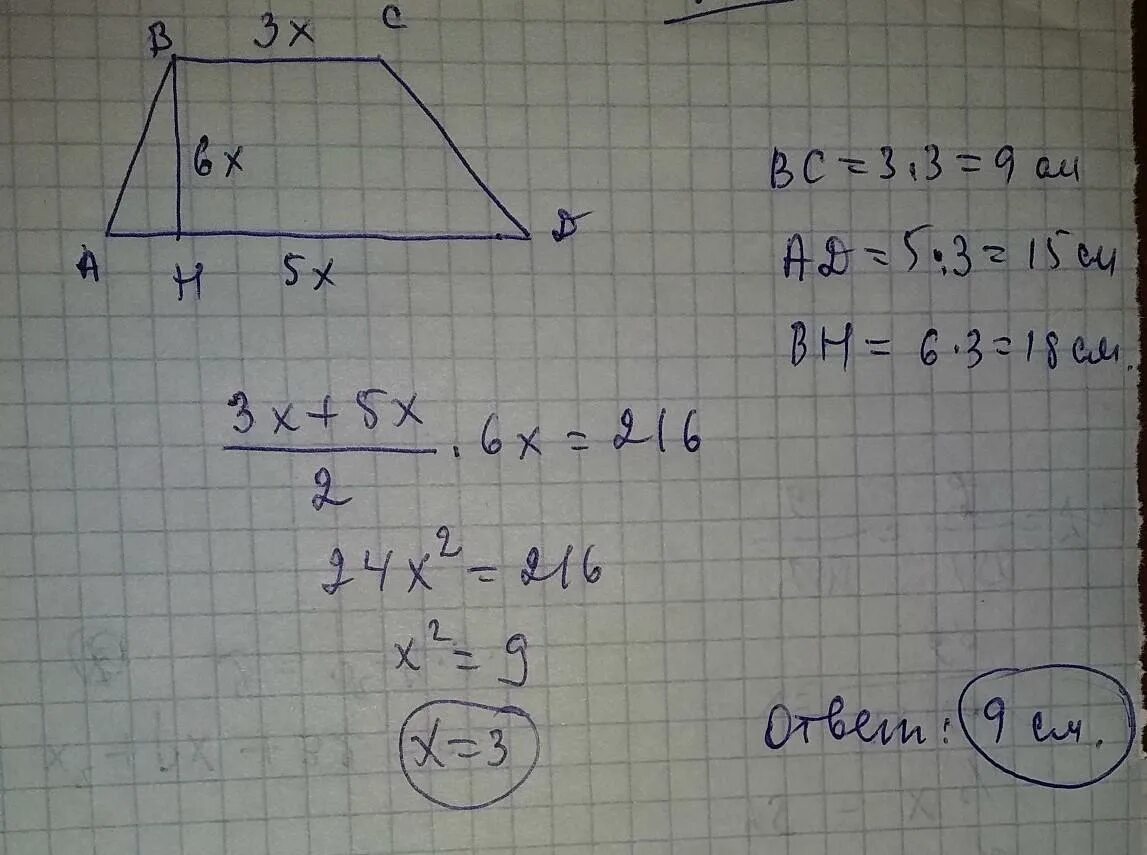 B 3x C
6x
A H 5x D
BC = 3·3 = 9 см
AD = 5·3 = 15 см
BH = 6·3 = 18 см.
(3x + 5x)/2 · 6x = 216
24x² = 216
x² = 9
x = 3
Ответ: 9 см.